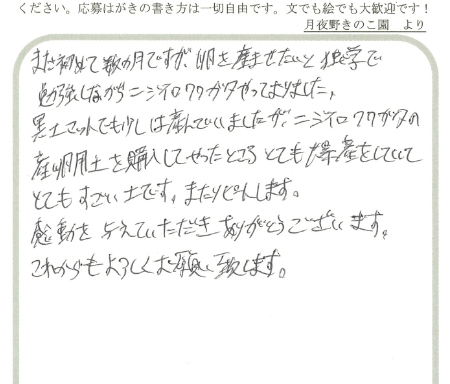 ください。応募はがきの書き方は一切自由です。文でも絵でも大歓迎です！
月夜野きのこ園　より
まだ初めて数カ月ですが、卵を産ませたいと独学で
勉強しながらニジイロクワガタやっておりました。
黒土マットでも少しは産んでいましたが、ニジイロクワガタの
産卵用土を購入してやったところ とても爆産をしていて
とてもすごい土です。またリピートします。
感動を与えていただきありがとうございます。
これからもよろしくお願い致します。